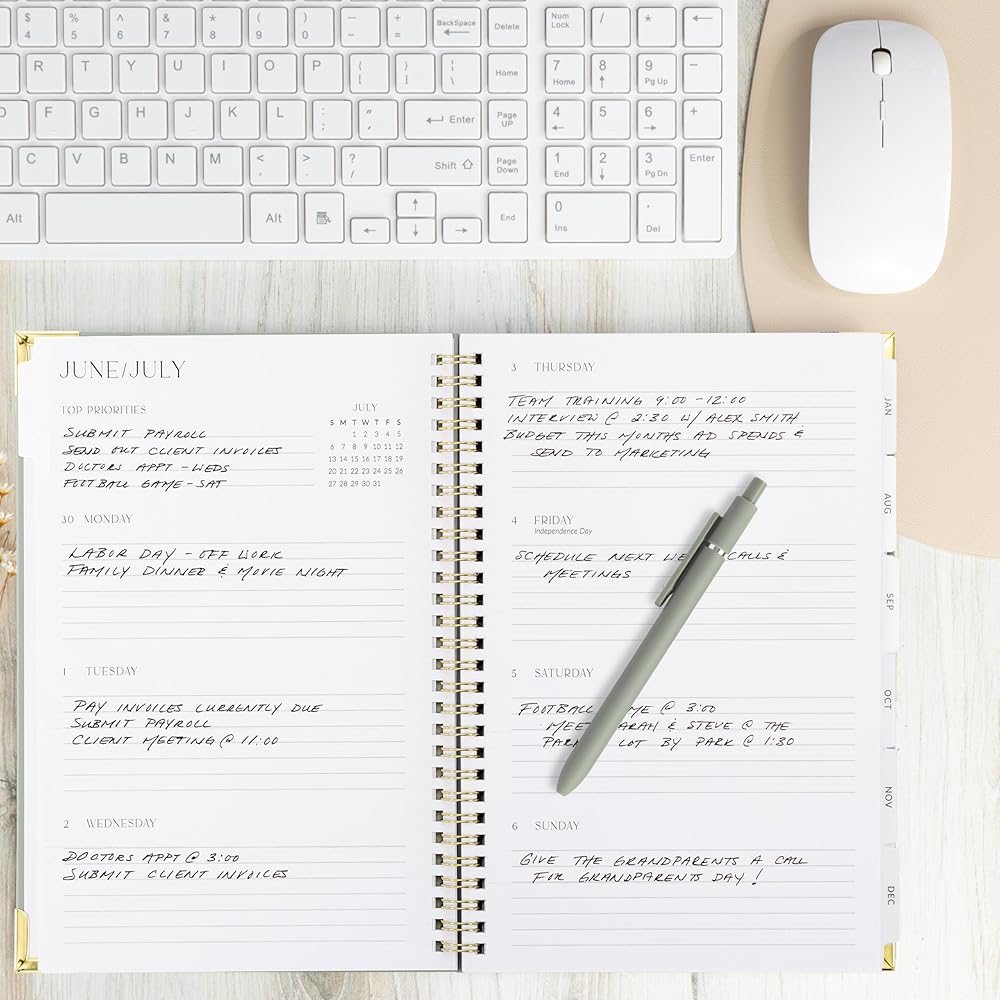 $ 4 % 5 ^ 6 & 7 * 8 ( 9 ) 0 _ - + = BackSpace Delete Num Lock / * ←
R T Y U I O P { [ } ] | \ Home 7 Home 8 ↑ 9 Pg Up −
D F G H J K L : ; " , ← Enter Page UP 4 ← 5 6 → +
C V B N M < , > . ? / Shift Page Down 1 End 2 ↓ 3 Pg Dn Enter
Alt Alt ← ↑ ↓ → End 0 Ins . Del
JUNE/JULY
TOP PRIORITIES
SUBMIT PAYROLL
SEND OUT CLIENT INVOICES
DOCTORS APPT - WEDS
FOOTBALL GAME - SAT
JULY
S M T W T F S
1 2 3 4 5
6 7 8 9 10 11 12
13 14 15 16 17 18 19
20 21 22 23 24 25 26
27 28 29 30 31
30 MONDAY
LABOR DAY - OFF WORK
FAMILY DINNER & MOVIE NIGHT
1 TUESDAY
PAY INVOICES CURRENTLY DUE
SUBMIT PAYROLL
CLIENT MEETING @ 11:00
2 WEDNESDAY
DOCTORS APPT @ 3:00
SUBMIT CLIENT INVOICES
3 THURSDAY
TEAM TRAINING 9:00 - 12:00
INTERVIEW @ 2:30 W/ ALEX SMITH
BUDGET THIS MONTHS AD SPENDS &
SEND TO MARKETING
4 FRIDAY
Independence Day
SCHEDULE NEXT CALLS &
MEETINGS
5 SATURDAY
FOOTBALL @ 3:00
MEET & STEVE @ THE
LOT BY PARK @ 1:30
6 SUNDAY
GIVE THE GRANDPARENTS A CALL
FOR GRANDPARENTS DAY!
JAN
AUG
SEP
OCT
NOV
DEC